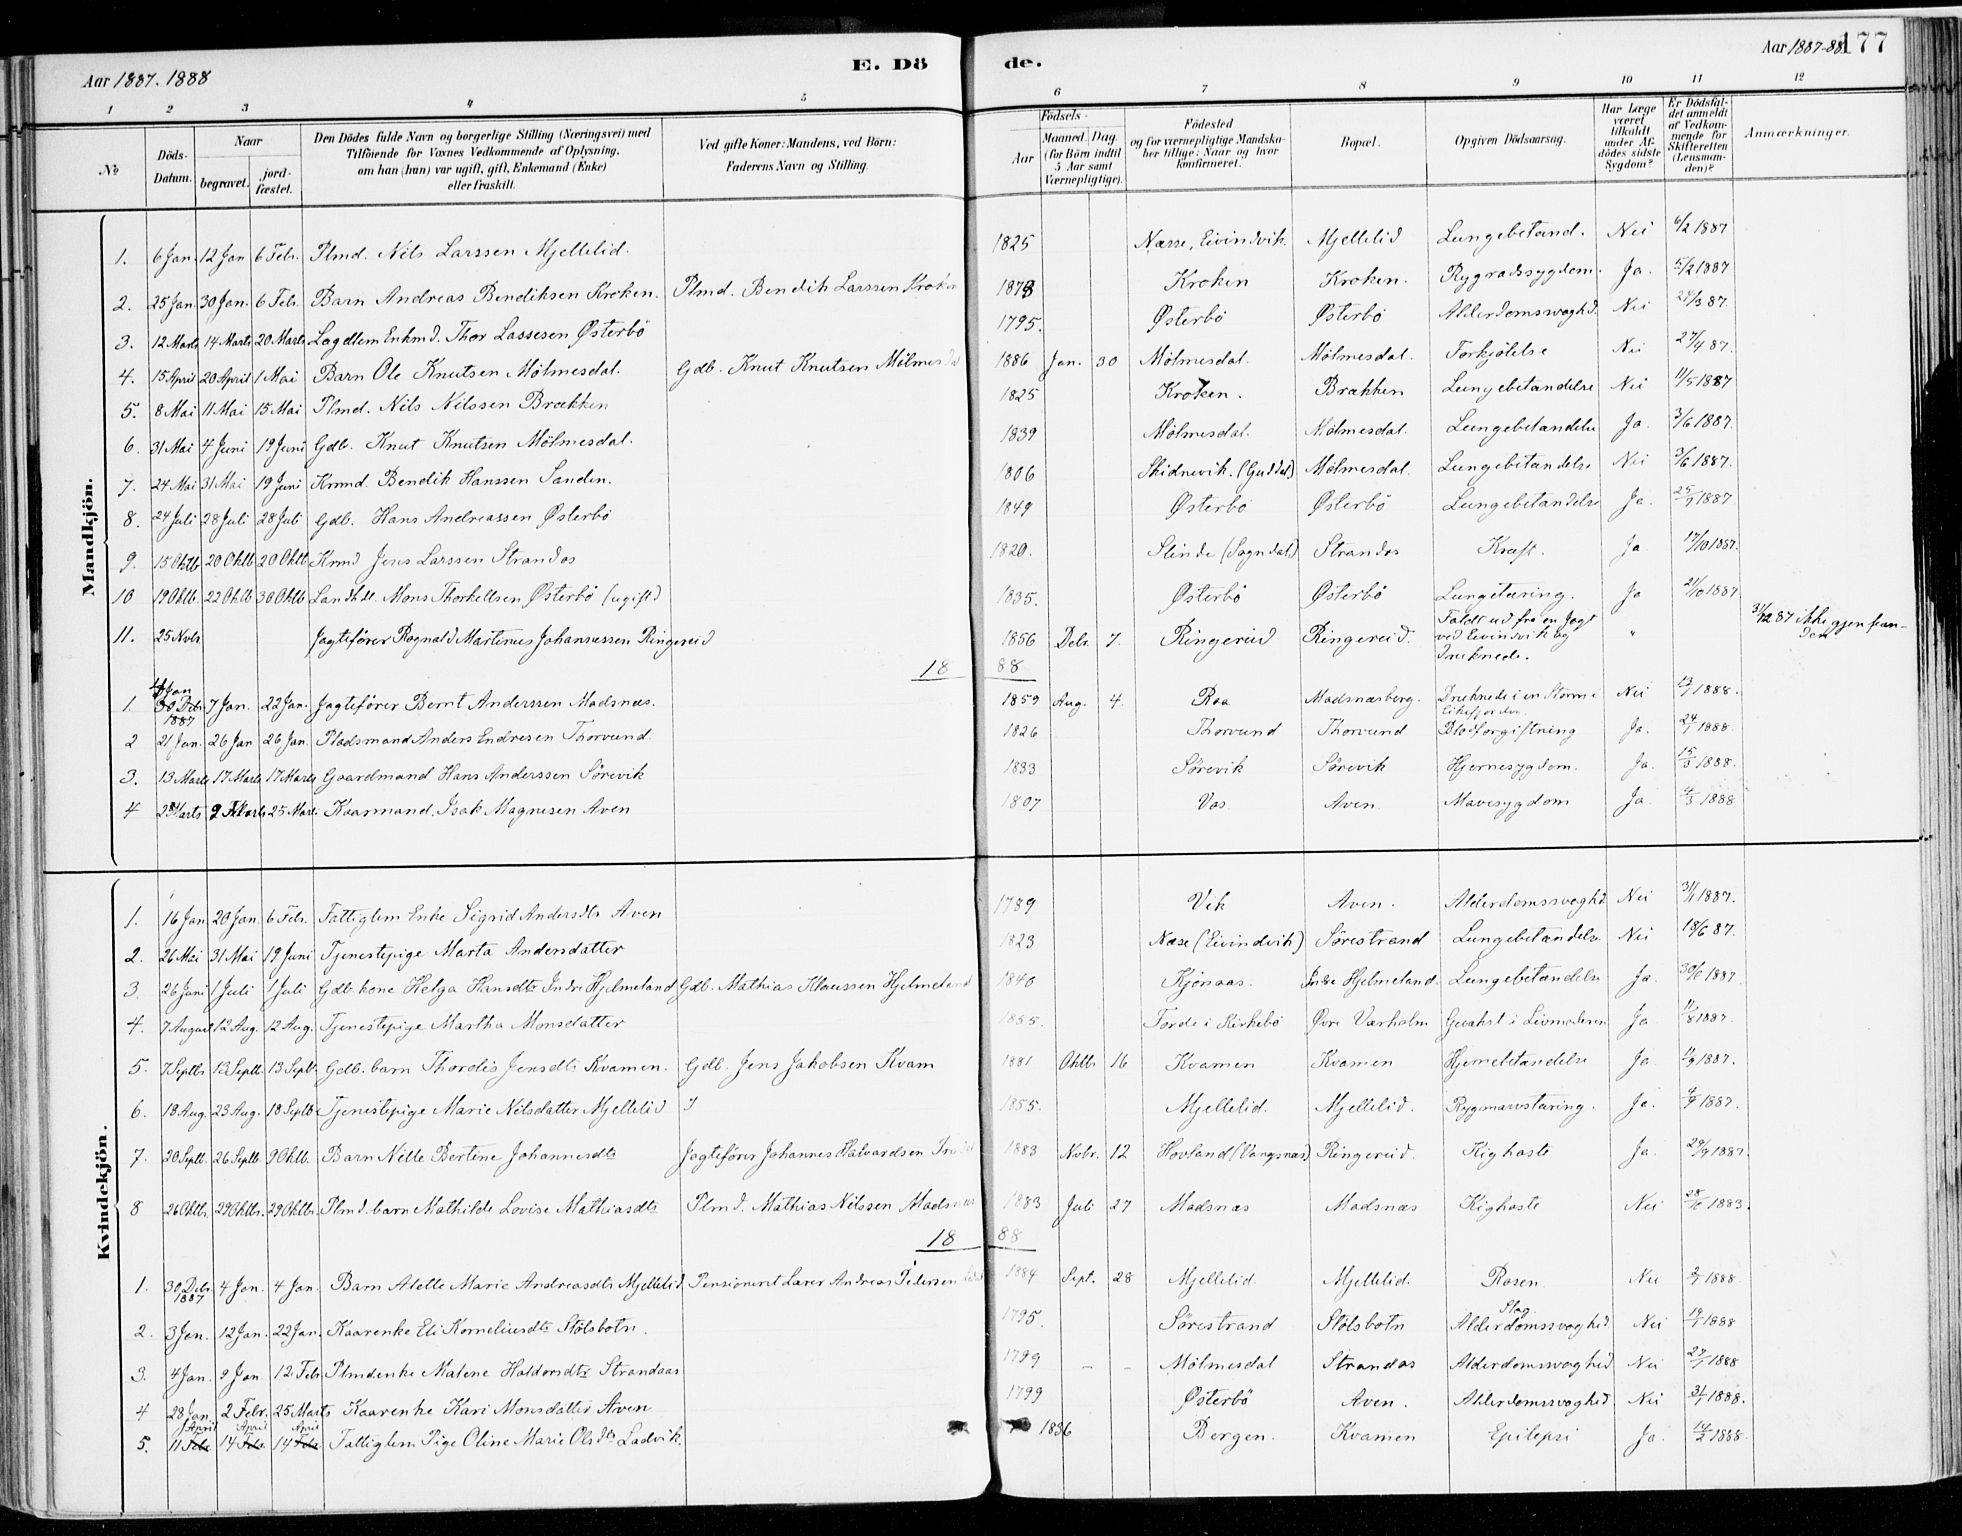 Aar 1887. 1888
E. Dö de.
Aar 1887-88 177
1 2 3 4 5 6 7 8 9 10 11 12
No Döds-Datum. Naar begravet. jordfæstet. Den Dödes fulde Navn og borgerlige Stilling (Næringsvei) med Tilföiende for Voxnes Vedkommende af Oplysning, om han (hun) var ugift, gift, Enkemand (Enke) eller fraskilt. Ved gifte Koner: Mandens, ved Börn: Faderens Navn og Stilling. Födsels- Aar Maaned. Dag. (for Börn indtil 5 Aar samt Værnepligtige). Födested og for værnepligtige Mandskaber tillige: Naar og hvor konfirmeret. Bopæl. Opgiven Dödsaarsag. Har Læge været tilkaldt under Afdödes sidste Sygdom? Er Dödsfaldet anmeldt af Vedkommende for Skifteretten (Lensmanden)? Anmærkninger.
Mandkjön.
1. 6 Jan. 12 Jan 6 Febr. Plmd. Nils Larssen Mjellelid. 1825 Næsse, Eivindvik. Mjellelid Lungebetænd. Nei 6/2 1887
2. 25 Jan. 30 Jan. 6 Feb. Barn Andreas Bendiksen Kroken. Plmd. Bendik Larssen Kroken 1878 Kroken Kroken. Rygradssygdom. Ja. 5/2 1887
3. 12 Marts 14 Marts 20 Marts Lægdlem Enkmd. Thor Lassesen Østerbö 1795. Østerbö Østerbö Alderdomssvaghd. Nei 24/3 87.
4. 15 April 20 April 1 Mai Barn Ole Knutsen Mölmesdal. Gdb. Knut Knutsen Mölmesdal 1886 Jan. 30 Mölmesdal. Mölmesdal. Forkjölelse Nei 27/4 87.
5. 8 Mai 11 Mai 15 Mai Plmd. Nils Nilssen Brækken 1825 Kroken. Brækken Lungebetændelse Nei 11/5 1887
6. 31 Mai 4 Juni 19 Juni Gdb. Knut Knutsen Mölmesdal. 1839 Mölmesdal. Mölmesdal. Lungebetændelse Ja. 3/6 1887.
7. 24 Mai 31 Mai 19 Juni Krmd. Bendik Hanssen Sanden. 1806 Skidnevik. (Guddal) Mölmesdal. Lungebetændelse Nei 3/6 1887.
8. 24 Juli 28 Juli 28 Juli Gdb. Hans Andreassen Østerbö 1849 Østerbö Østerbö Lungebetændelse Ja. 25/7 1887
9. 15 Oktb 20 Oktb 20 Oktb Krmd Jens Larssen Strandos 1820. Slinde (Sogndal) Strandos Kræft. Ja. 17/10 1887.
10 19 Oktb. 22 Oktb 30 Oktb Landhdl. Mons Thorkellsen Østerbö (ugift) 1835. Østerbö Østerbö Lungetæring. Ja 21/10 1887
11. 25 Nvbr Jagtefører Ragnald Martinus Johannessen Ringereid 1856 Debr. 7. Ringereid Ringereid. Faldt ud fra en Jagt ved Eivindvik og druknede. " 31/12 87 ikke gjenfunden
18 88
1. 30 Debr. 1887 7 Jan. 22 Jan. Jagtefører Bernt Anderssen Madsnæs. 1859 Aug. 4. Raa Madsnæsberg. Druknede i en Storm i Eikefjorden. Nei 13/1 1888.
2 21 Jan. 26 Jan 26 Jan. Pladsmand Anders Endresen Thorvund. 1826 Thorvund Thorvund Blodforgiftning Ja. 24/1 1888.
3. 13 Marts 17 Marts 17 Marts Gaardmand Hans Anderssen Sörevik 1833 Sörevik Sörevik Hjernesygdom. Ja. 15/3 1888.
4 2 Marts 9 Marts 25 Mars Kaarmand. Isak Magnesen Aven 1807 Vos Aven. Mavesygdom Ja. 4/3 1888
Kvindekjön.
1. 16 Jan. 20 Jan. 6 Febr. Fattiglem Enke Sigrid Andersdtr Aven 1789 Vik Aven. Alderdomssvaghd Nei 31/1 1887.
2. 26 Mai 31 Mai 19 Juni Tjenestepige Marta Andersdatter 1823 Næse (Eivindvik) Sörestrand Lungebetændelse. Nei 18/6 87.
3. 26 Juni 1 Juli 1 Juli Gdb. kone Helga Hansdtr Indre Hjelmeland Gdb. Mathias Klaussen Hjelmeland 1840 Kjönaas. Indre Hjelmeland. Lungebetændelse Ja. 30/6 1887.
4. 7 August 12 Aug. 12 Aug. Tjenestepige Martha Monsdatter 1855. Förde i Kirkebö Övre Værholm Gevækst i Livmoderen Ja. 11/8 1887.
5. 7 Septbr 13 Septb. 13 Septb. Gdb. barn Thordis Jensdtr Kvamen. Gdb. Jens Jakobsen Kvam 1881 Oktbr 16 Kvamen Kvamen Hjernebetændelse Ja. 11/9 1887.
6. 18 Aug. 23 Aug. 18 Septb. Tjenestepige Marie Nilsdatter Mjellelid 1855. Mjellelid. Mjellelid. Rygmarvstæring. Ja. 4/9 1887.
7. 20 Septb. 26 Septb. 9 Oktb. Barn Nille Bertine Johannesdtr Jagtefører Johannes Halvardsen 1883 Nvbr. 12 Hovland (Vangsnæs) Ringereid. Kighoste Ja. 29/9 1887.
8 26 Oktbr. 29 Oktbr. 29 Oktbr. Plmd. barn Mathilde Lovise Mathiasdtr Plmd. Mathias Nilssen Madsnæs 1883 Juli 27 Madsnæs Madsnæs Kighoste Nei 28/10 1883.
18 88
1. 30 Debr. 1887 4 Jan. 4 Jan. Barn Alette Marie Andreasdtr Mjellelid. Pensioneret Lærer Andreas Pedersen 1884 Sept. 28 Mjellelid. Mjellelid. Rosen. Nei 2/1 1888.
2. 3 Jan. 12 Jan. 22 Jan. Kaarenke Eli Korneliusdtr Stölsbotn. 1795. Sörestrand Stölsbotn Slag. Alderdomssvaghed. Nei 19/1 1888
3. 4 Jan. 9 Jan. 12 Febr Plmdenke Malene Haldorsdtr Strandaas 1799 – – Mölmesdal Strandos Alderdomssvaghed. Nei 27/1 1888
4 28 Jan. 2 Febr. 25 Marts Kaarenke Kari Monsdatter Aven 1799 Østerbö Aven. Alderdomssvaghed. Nei 31/1 1888.
5. 11 Febr April 14 Febr April 14 Febr April Fattiglem Pige Oline Marie Olsdtr Ladvik. 1836 Bergen. Kvamen Epilepsi Ja. 14/2 1888.